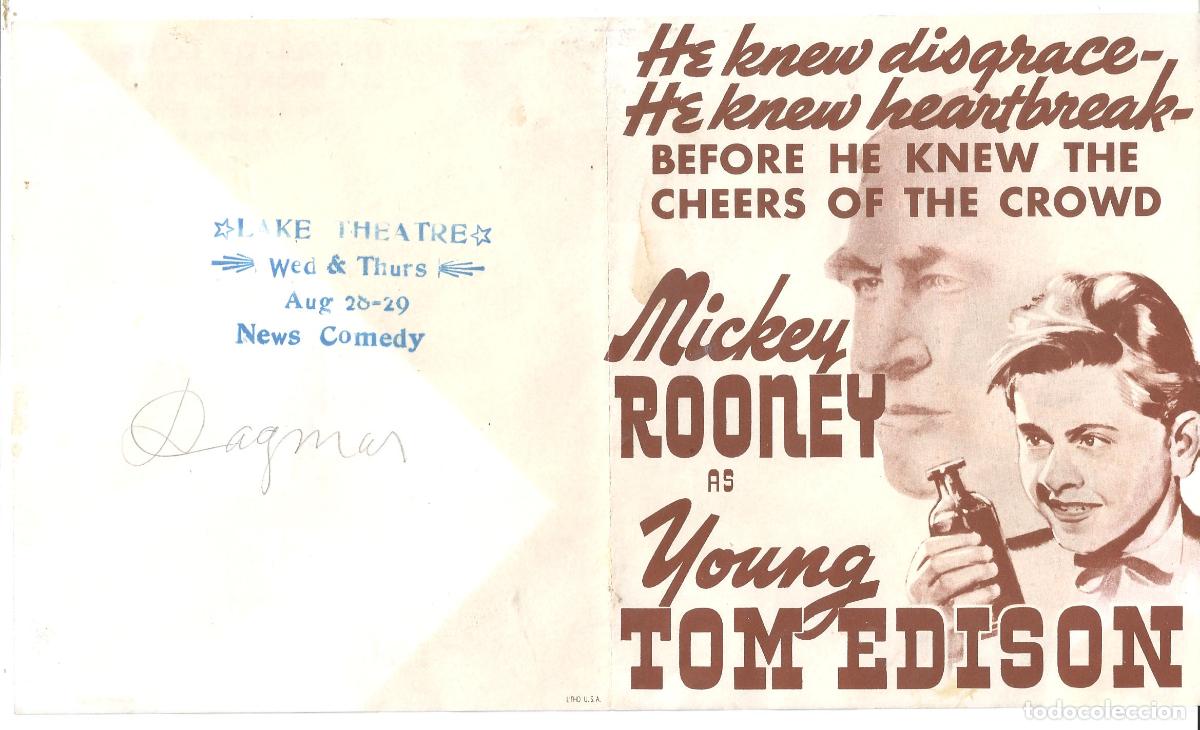 ☆LAKE THEATRE☆
Wed & Thurs
Aug 28-29
News Comedy
Dagmar
LITHO U.S.A.
He knew disgrace-
He knew heartbreak-
BEFORE HE KNEW THE
CHEERS OF THE CROWD
Mickey
ROONEY
AS
Young
TOM EDISON
todocoleccion